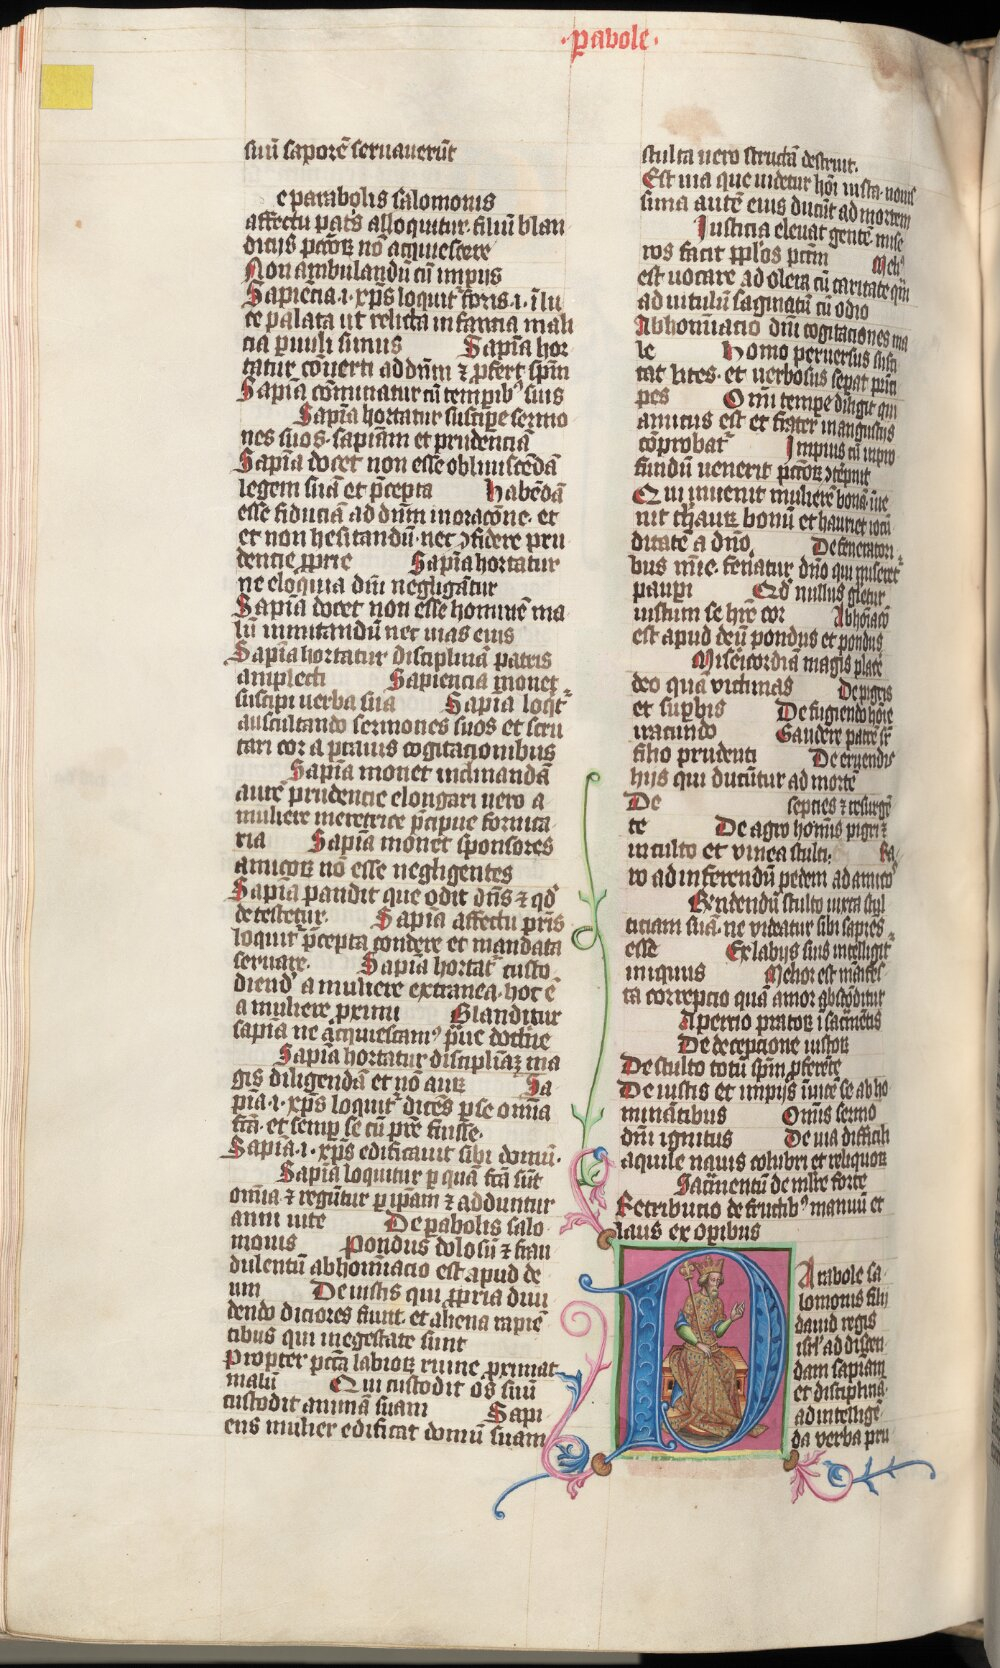 ·pabole·
suū saporē seruauerūt
e parabolis salomonis
affectu pat's alloquitur filiū blan
dicijs pctoꝝ nō acquiescere
Non ambulandū cū impijs
Sapiēcia ·i· xp̄s loquit' foris ·i· ī lu
ce palata ut relicta infancia mali
cia puuli simus Sapīa hor
tatur cōuerti ad dn̄m ⁊ pfert spm̄
Sapīa cōminatur cū temptib9 suis
Sapīa hortatur suscipe sermo
nes suos sapīam et prudenciā
Sapīa docet non esse obliuiscēdā
legem suā et p̄cepta habēdā
esse fiduciā ad dn̄m in oracōne et
et non hesitandū nec ꝯfidere pru
dencie pprie Sapīa hortatur
ne eloquia dn̄i negligātur
Sapīa docet non esse hominē ma
lū imitandū nec uias eius
Sapīa hortatur disciplinā patris
amplecti Sapiencia monet
suscipi uerba sua Sapīa loq̄t'
auscultando sermones suos et scru
tari cor a prauis cogitacionibus
Sapīa monet inclinandā
aurē prudencie elongari uero a
muliere meretrice p̄cipue fornica
ria Sapīa monet sponsores
amicoꝝ nō esse negligentes
Sapīa pandit que odit dn̄s ⁊ qd'
detestetur Sapīa affectu pr̄is
loquit' p̄cepta condere et mandata
seruare· Sapīa hortat' custo
diend' a muliere extranea· hoc ē
a muliere proximi Blanditur
sapīa ne acquiescam9 praue doctrīe
Sapīa hortatur disciplīaꝫ ma
gis diligendā et nō auꝝ Sa
pīa ·i· xp̄s loquit' dicēs p se omīa
fcā· et semp se cū pr̄e fuisse·
Sapīa ·i· xp̄s edificauit sibi domū·
Sapīa loquitur p quā fcā sūt
omīa ⁊ regūtur p ip̄am ⁊ adduntur
anni uite De pabolis salo
monis Pondus dolosū ⁊ frau
dulentū abhoīnacio est apud de
um De iustis qui ppria diui
dendo diciores fiunt· et aliena rapiē
tibus qui in egestate sunt
Propter pctā labioꝝ ruine proximat
malū Qui custodit os suū
custodit animā suam Sapi
ens mulier edificat domū suam
stulta uero structā destruit·
Est uia que uidetur hoī iusta· noui
sima autē eius ducūt ad mortem
Justicia eleuat gentē mise
ros facit pplos pctm̄ Meli9
est uocare ad olera cū caritate qm̄
ad uitulū saginatū cū odio
Abhomīacio dn̄i cogitaciones ma
le Homo peruersus susci
tat lites· et uerbosus sepat prīci
pes Omi tempe diligit qui
amicus est et frater in angustijs
cōprobat' Impius cū in pro
fundū uenerit pctoꝝ ꝯtēpnit
Qui inuenit mulierē bonā īue
nit thauꝝ bonū et hauriet iocū
ditatē a dn̄o De feneratori
bus m̄ie· feneratur dn̄o qui miseret'
paupi Qd' nullus gl̄etur
iustum se hr̄e cor Abhoīacō
est apud deū pondus et pondus
Misericordiā magis placē
deo quā victimas De pigris
et supbis De fugiendo hōīe
iracundo Gaudere patrē sr̄
filio prudenti De eruendis
hijs qui ducūtur ad mortē
De septies ⁊ resurgē
te De agro hominis pigri ⁊
inculto et vinea stulti· Ra
ro ad inferendū pedem ad amicū
Rn̄dendū stulto iuxta stul
ticiam suā· ne videatur sibi sapiēs
esse Ex labijs suis intelligit'
iniquus Melior est manifes
ta correpcio quā amor abscōditus
Apercio pratoꝝ ī sacramētis
De decepcione iustoꝝ
De stulto totū spm̄ pferēte
De iustis et impijs īuicē se abho
minātibus Omīs sermo
dn̄i ignitus De uia difficili
aquile nauis colubri et reliquoꝝ
Sacramentū de mlr̄e forte
Retribucio de fructib9 manuū et
laus ex opibus
Arabole sa
lomonis filij
dauid regis
isrl' ad discen
dam sapīam
et disciplinā·
ad intelligē
da verba pru